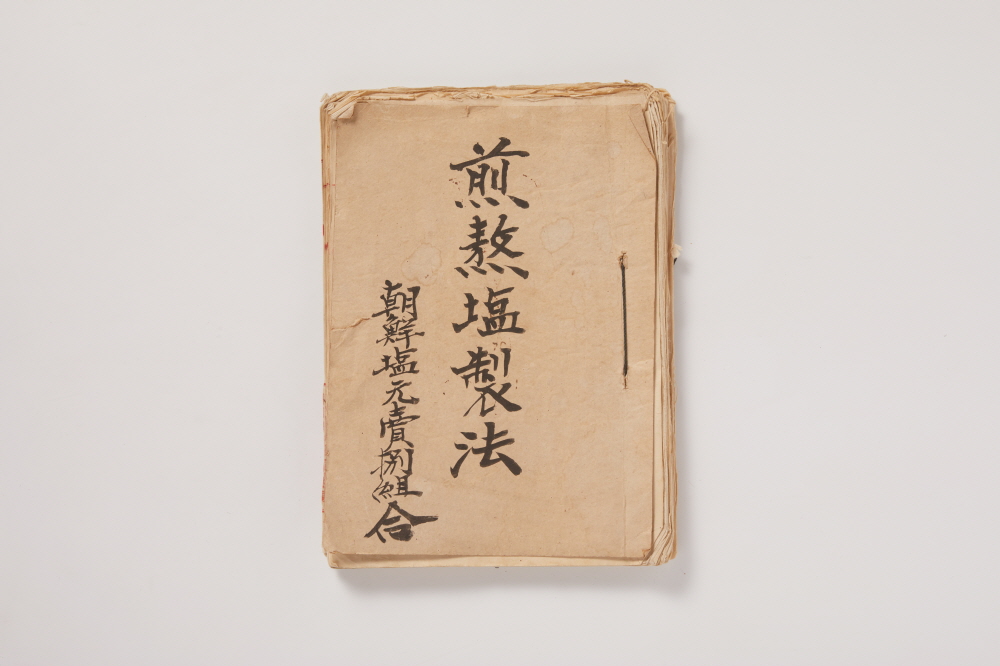 煎熬塩製法
朝鮮塩元賣捌組合